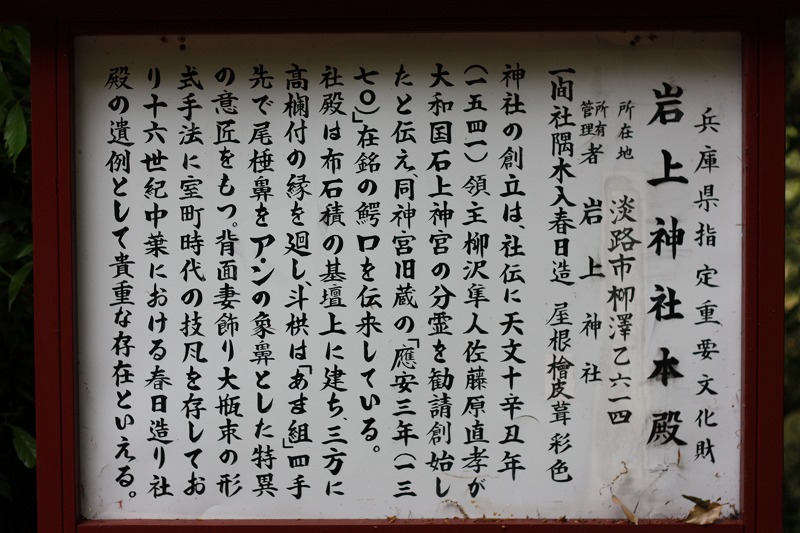 兵庫県指定重要文化財
岩上神社本殿
所在地 淡路市柳澤乙六一四
所有者 管理者 岩上神社
一間社隅木入春日造 屋根檜皮葺 彩色
神社の創立は、社伝に天文十辛丑年
(一五四一)領主柳沢隼人佐藤原直孝が
大和国石上神宮の分霊を勧請創始し
たと伝え、同神宮旧蔵の「應安三年(一三
七〇)」在銘の鰐口を伝来している。
社殿は布石積の基壇上に建ち、三方に
高欄付の縁を廻し、斗栱は「あま組」四手
先で尾棰鼻をア・ンの象鼻とした特異
の意匠をもつ。背面妻飾り大瓶束の形
式手法に室町時代の技凡を存してお
り十六世紀中葉における春日造り社
殿の遺例として貴重な存在といえる。